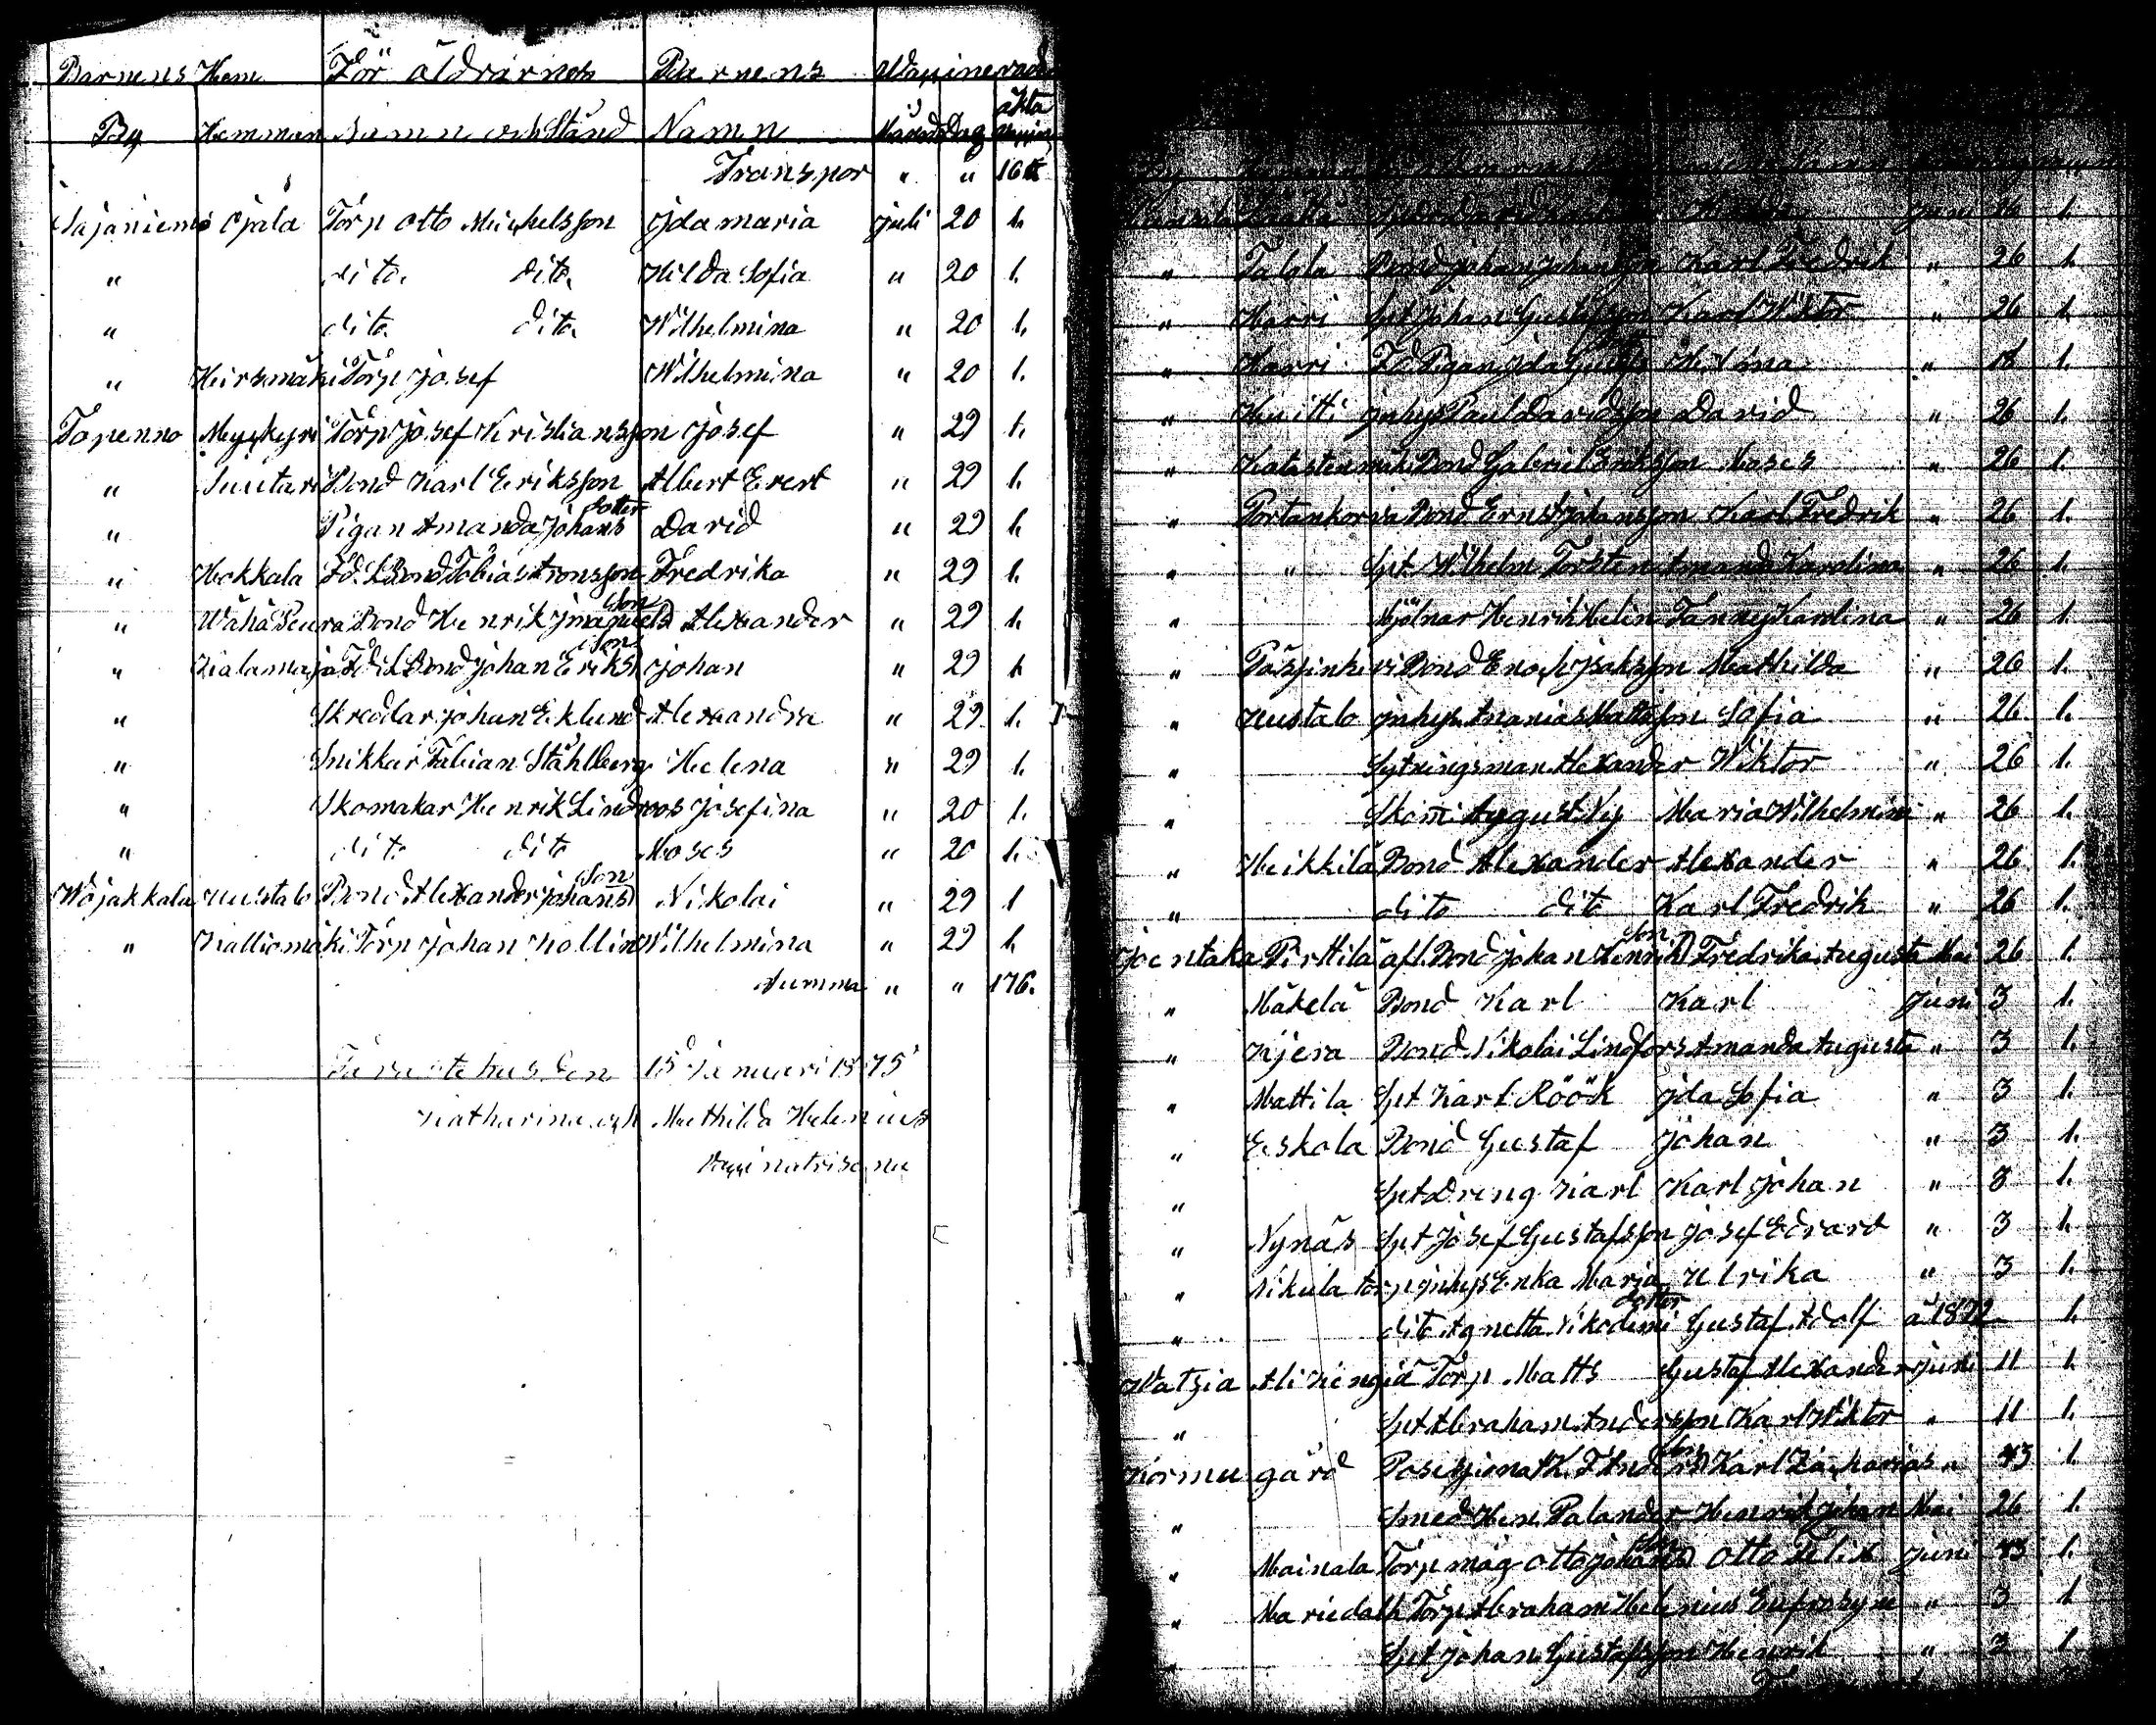 Barnens Hem Föräldrarnes Barnens Waxinerade
By Hemman Namn och Stånd Namn Månad Dag äkta
Transpor " " 160
Sajaniemi Ojala Torp Otto Michelsson Ida Maria Juli 20 1.
" dito. dito. Hilda Sofia " 20 1.
" dito dito. Wilhelmina " 20 1.
" Hirsmäki Torp Josef Wilhelmina " 20 1.
Topenno Myykyri Torp Josef Kristiansson Josef " 29 1.
" Suutari Bond Karl Eriksson Albert Evert " 29 1.
" Pigan Amanda Johans dotter David " 29 1.
" Hokkala Fd. LBond Tobias Aronsson Fredrika " 29 1.
" Wähä Peura Bond Henrik Imanuels son Alexander " 29 1.
" Kalamaja Fd LBond Johan Eriks son Johan " 29 1
" Skreddar Johan Eklund Alexandra " 29. 1.
" Snikkar Fabian Ståhlberg Helena " 29 1.
" Skomakar Henrik Lindroos Josefina " 20 1.
" dito dito Moses " 20 1.
Wojakkala Uustalo Bond Alexander Johans son Nikolai " 29 1
" Kalliomäki Torp Johan Kollin Wilhelmina " 29 1.
Summa " " 176.
Tavastehus den 15 Januari 1875
Katharina och Mathilda Helenius
By Namn
Juni 26 1.
" Talola Bond Johan Johansson Karl Fredrik " 26 1.
" Harri Spt Johan Gustafsson Karl Wiktor " 26 1.
" Harri Fd Pigan Ida Gustafs Helena " 18 1.
" Huitti Inhys Paul Davidsson David " 26 1.
" Bond Gabriel Eriksson Moses " 26 1.
" Portankorva Bond Ernst Johansson Karl Fredrik " 26 1.
" " Spt. Wilhelm Torsten Amanda Karolina " 26 1.
" Mjölnar Henrik Helin Fanny Karolina " 26 1.
" Bond Enok Isaksson Mathilda " 26 1.
" Uustalo Inhys Ananias Mattsson Sofia " 26. 1.
" Sytningsman Alexander Wiktor " 26 1.
" Skom August Ny Maria Wilhelmina " 26 1.
" Heikkilä Bond Alexander Alexander " 26 1.
" dito dito Karl Fredrik " 26 1.
Joentaka Pirttilä afl. Bond Johan Henrik son Fredrika Augusta Mai 26 1.
" Mäkelä Bond Karl Karl Juni 3 1.
" Kjera Bond Nikolai Lindfors Amanda Augusta " 3 1.
" Mattila Spt Karl Röök Ida Sofia " 3 1.
" Eskola Bond Gustaf Johan " 3 1.
" Spt Dreng Karl Karl Johan " 3 1.
" Nynäs Spt Josef Gustafsson Josef Edvard " 3 1.
" Nikula torp inhys Enka Marja Ulrika " 3 1.
" dito Agnetta Nikodemi dotter Gustaf Adolf å 1872 1.
Watsia Alikengiä Torp Matts Gustaf Alexander Juni 11 1.
" Spt Abraham Andersson Karl Wiktor " 11 1.
Kormu gård Possessionat K. F Anders son Karl Zacharias " 13 1.
" Smed Hen Palander Henrik Johan Mai 26 1.
" Mainala Torp måg Otto Johans son Otto Felix Juni 13 1.
" Mariedahl Torp Abraham Helenius Eufrosyne " 3 1.
Spt Johan Gustafsson Henrik " 3 1.